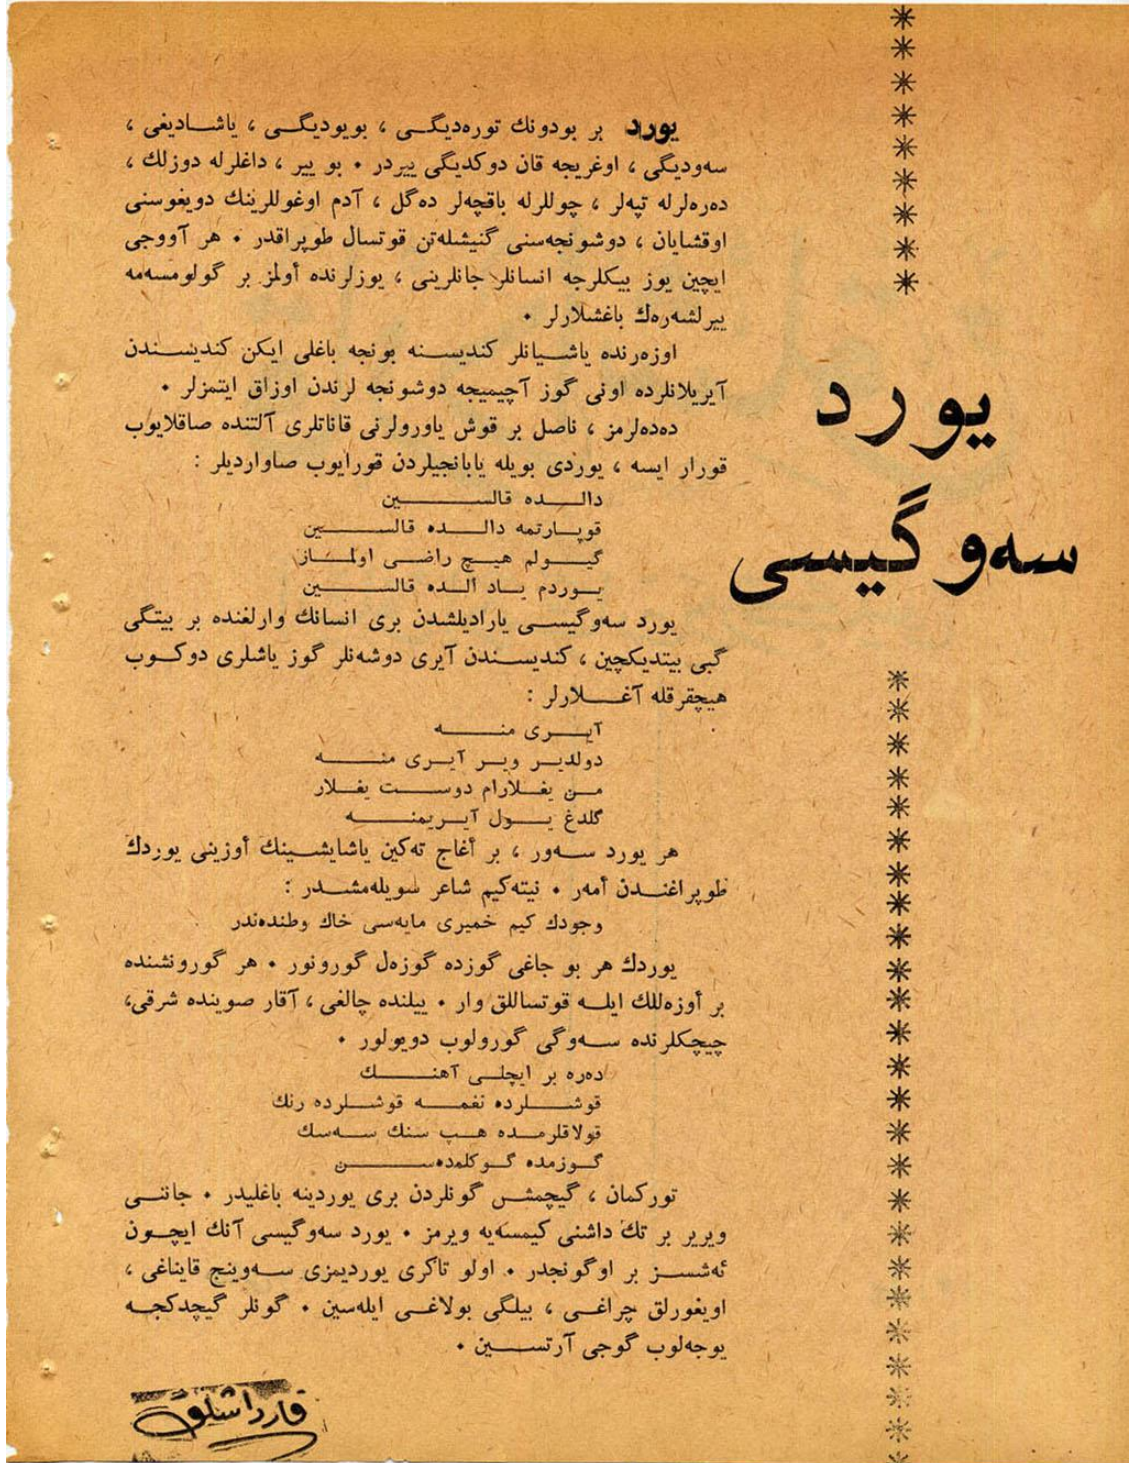 يورد
سەوگيسى
يورد بر بودونك تورەديگـى ، بويوديگـى ، ياشـاديغى ،
سەوديگى ، اوغريجه قان دوكديگى ييردر ٠ بو يير ، داغلرله دوزلك ،
دەرەلرله تپەلر ، چوللرله باقچەلر دەگل ، آدم اوغوللرينك دويغوسنى
اوقشايان ، دوشونجەسنى گنيشلەتن قوتسال طوپراقدر ٠ هر آووجى
ايچين يوز بيكلرجه انسانلر جانلرينى ، يوزلرنده أولمز بر گولومسەمه
ييرلشەرەك باغشلارلر ٠
اوزەرنده ياشـيانلر كنديسـنه بونجه باغلى ايكن كنديسـندن
آيريلانلرده اونى گوز آچيميجه دوشونجه لرندن اوزاق ايتمزلر ٠
دەدەلرمز ، ناصل بر قوش ياورولرنى قاناتلرى آلتنده صاقلايوب
قورار ايسه ، يوردى بويله يابانجيلردن قورايوب صاوارديلر :
دالـــده قالســــين
قوپـارتمه دالـــده قالســــين
گيـــولم هيـــچ راضـى اولمـــاز
يـــوردم يـــاد الـــده قالســــين
يورد سەوگيسـى ياراديلشدن برى انسانك وارلغنده بر بيتگى
گبى بيتديكچين ، كنديسـندن آيرى دوشەنلر گوز ياشلرى دوكـوب
هيچقرقله آغـــلارلر :
آيـــرى منـــه
دولديـر ويـر آيـرى منـــه
مـن يغـلارام دوسـت يغـلار
گلدغ يـــول آيـريمنـــه
هر يورد سـەور ، بر أغاج تەكين ياشايشـينك أوزينى يوردك
طوپراغنـدن أمەر ٠ نيتەكيم شاعر سويلەمشـدر :
وجودك كيم خميرى مايەسى خاك وطندەندر
يوردك هر بو جاغى گوزده گوزەل گورونور ٠ هر گورونشنده
بر أوزەللك ايلـه قوتساللق وار ٠ ييلنده چالغى ، آقار صوينده شرقى،
چيچكلرنده سـەوگى گورولوب دويولور ٠
دەره بر ايچلـى آهنـــك
قوشـــلرده نغمـه قوشـــلرده رنك
قولاقلرمـده هـپ سنك سـەسك
گـوزمده گـوكلمدەســـن
توركمان ، گيچمشـ گونلردن برى يوردينه باغليدر ٠ جاننـى
ويرير بر تك داشنى كيمسەيه ويرمز ٠ يورد سەوگيسى آنك ايچـون
ئەشسـز بر اوگونجدر ٠ اولو تاكرى يورديمزى سـەوينج قايناغى ،
اويغورلق چراغـى ، بيلگى بولاغـى ايلەسين ٠ گونلر گيچدكجـه
يوجەلوب گوجى آرتســين ٠
قارداشلق